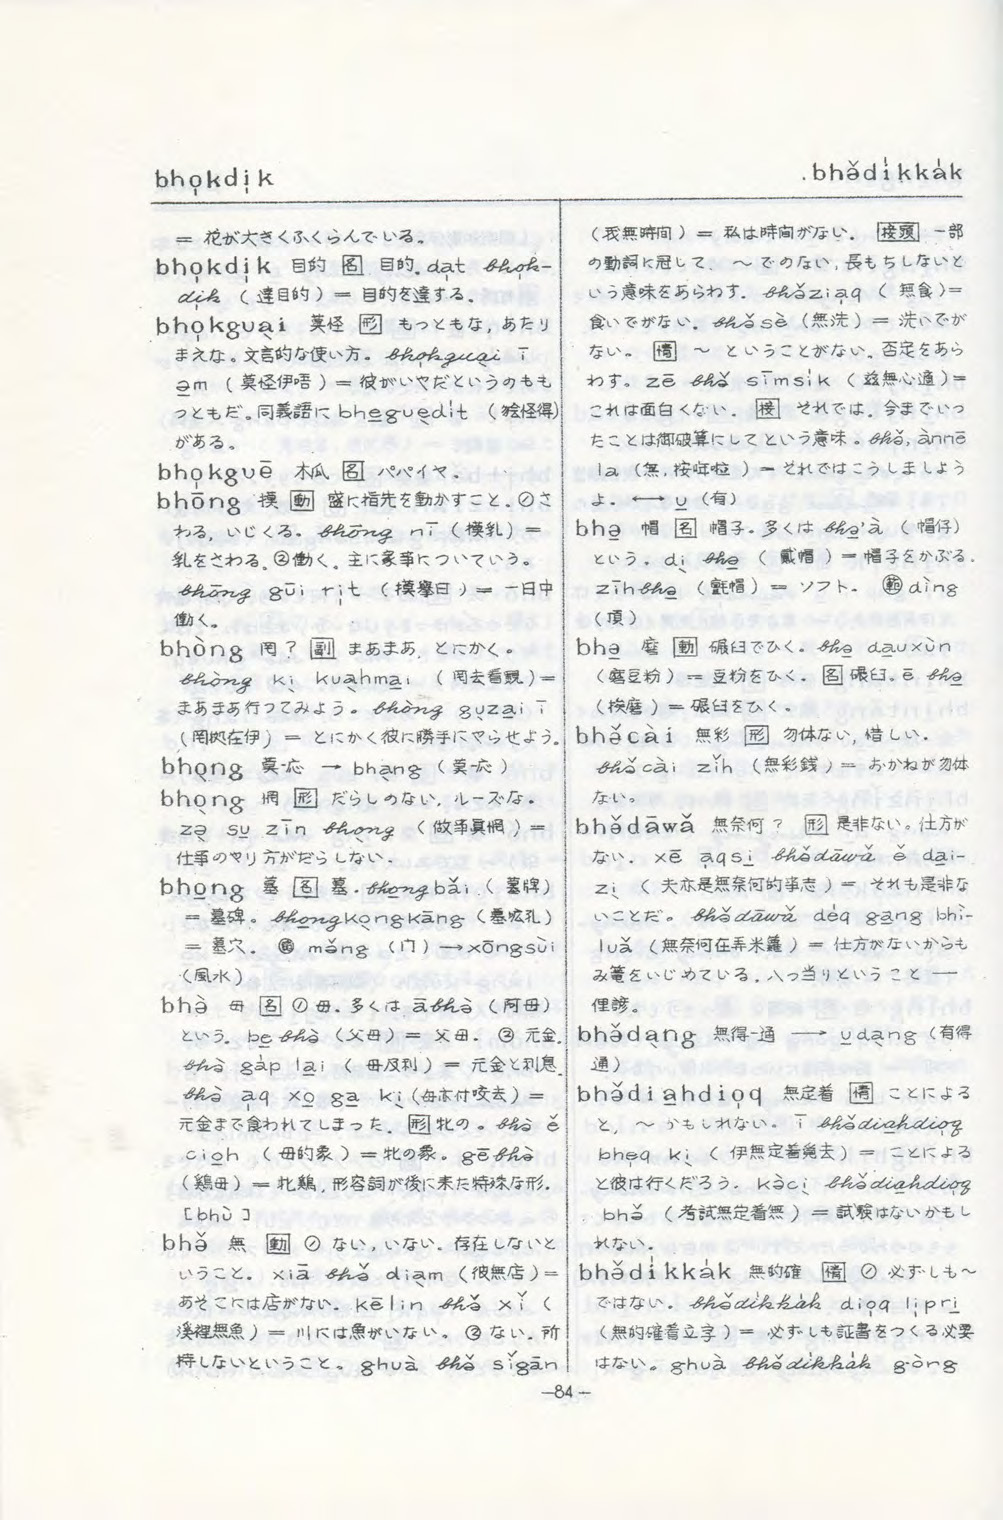 bho̩kdi̩k
bhǝ̌di̍kka̍k
= 花が大きくふくらんでいる。
bho̩kdi̩k 目的 [名] 目的. da̩t bho̩k-
di̩k (達目的) = 目的を達する.
bho̩kgua̩i 莫怪 [形] もっともな, あたり
まえな。文言的な使い方。bho̩kgua̩i ī
a̱m (莫怪伊唔) = 彼がいやだというのもも
っともだ。同義語に bhegue̱di̍t (袂怪得)
がある。
bho̩kguē 木瓜 [名] パパイヤ.
bhōng 摸 [動] 盛に指先を動かすこと. ①さ
わる, いじくる。bhōng nī (摸乳) =
乳をさわる。②働く. 主に家事についていう。
bhōng gūi ri̩t (摸擧日) = 一日中
働く。
bhòng 罔? [副] まあまあ, とにかく。
bhòng ki̩ kua̩hma̱i (罔去看覭) =
まあまあ行ってみよう。bhòng gu̩za̱i ī
(罔拠在伊) = とにかく彼に勝手にやらせよう。
bho̩ng 莫-応 → bha̩ng (莫-応)
bho̩ng 惘 [形] だらしのない, ルーズな。
zǝ̩ su̱ zīn bho̩ng (做事真惘) =
仕事のやり方がだらしない.
bho̱ng 墓 [名] 墓. bho̱ngbāi (墓牌)
= 墓碑。bho̱ngko̩ngkāng (墓壙孔)
= 墓穴. mǎng (门) → xōngsùi
(風水)
bhǝ̀ 母 [名] ①母. 多くは ābhǝ̀ (阿母)
という. be̱ bhǝ̀ (父母) = 父母. ②元金.
bhǝ̀ ga̍p la̱i (母及利) = 元金と利息.
bhǝ̀ a̱q xo̩ ga̱ ki̩ (母亦付咬去) =
元金まで食われてしまった. [形] 牝の。bhǝ̀ ě
cioh (母的象) = 牝の象。gēbhǝ̀
(鶏母) = 牝鶏. 形容詞が後に来た特殊な形.
[bhù]
bhǝ̌ 無 [動] ① ない, いない. 存在しないと
いうこと. xiā bhǝ̌ dia̩m (彼無店) =
あそこには店がない. kēlin bhǝ̌ xǐ (
溪裡無魚) = 川には魚がいない。②ない. 所
持しないということ。ghuà bhǝ̌ sǐgān
(我無時间) = 私は時间がない. [接頭] 一部
の動詞に冠して、~でのない, 長もちしないと
いう意味をあらわす. bhǝ̌zia̱q (無食) =
食いでがない. bhǝ̌sè (無洗) = 洗いでが
ない。[情] ~ということがない, 否定をあら
わす。zē bhǝ̌ sīmsi̍k (玆無心適) =
これは面白くない. [接] それでは. 今までいっ
たことは御破算にしてという意味。bhǝ̌, ànnē
la (無, 按哖啦) = それではこうしましよう
よ. ←→ u̱ (有)
bhǝ̱ 帽 [名] 帽子. 多くは bhǝ̱'à (帽仔)
という. di̩ bhǝ̱ (戴帽) = 帽子をかぶる.
zīhbhǝ̱ (氈帽) = ソフト. dìng
(頂)
bhǝ̱ 磨 [動] 碾臼でひく。bhǝ̱ da̱uxùn
(磨豆粉) = 豆粉をひく。[名] 碾臼。ē bhǝ̱
(挨磨) = 碾臼をひく。
bhǝ̌cài 無彩 [形] 勿体ない, 惜しい.
bhǝ̌cài zǐh (無彩銭) = おかねが勿体
ない。
bhǝ̌dāwǎ 無奈何? [形] 是非ない。仕方が
ない. xē a̱qsi̱ bhǝ̌dāwǎ ě da̱i-
zi̩ (夫亦是無奈何的事志) = それも是非な
いことだ。bhǝ̌dāwǎ dé̱q ga̱ng bhì-
luǎ (無奈何在弄米籮) = 仕方がないからも
み篭をいじめている. 八つ当りということ ――
俚諺.
bhǝ̌da̩ng 無得-通 → u̱da̩ng (有得
通)
bhǝ̌di̱a̱hdio̱q 無定着 [情] ことによる
と, ~かもしれない. ī bhǝ̌dia̱hdio̱q
bhe̩q ki̩ (伊無定着覔去) = ことによる
と彼は行くだろう. kǝ̀ci̩ bhǝ̌dia̱hdio̱q
bhǝ̌ (考試無定着無) = 試験はないかもし
れない.
bhǝ̌di̍kka̍k 無的確 [情] ① 必ずしも~
ではない. bhǝ̌di̍kka̍k dio̱q li̩pri̱
(無的確着立字) = 必ずしも証書をつくる必要
はない。ghuà bhǝ̌di̍kka̍k gòng
—84—